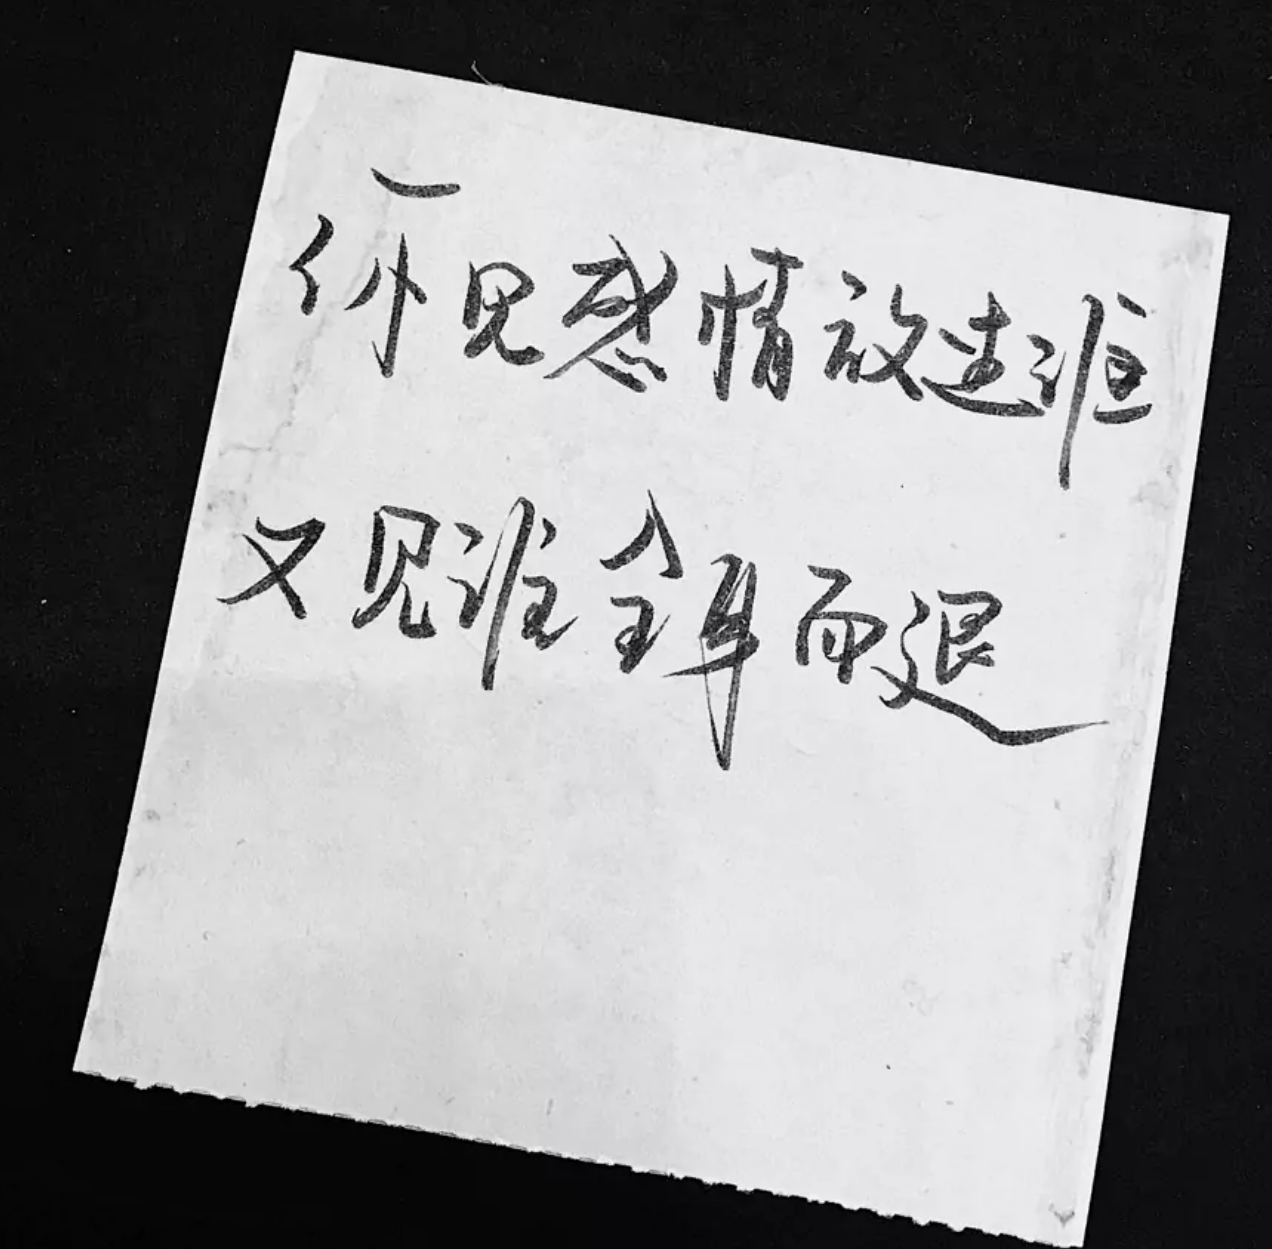 你见感情放过谁
又见谁全身而退